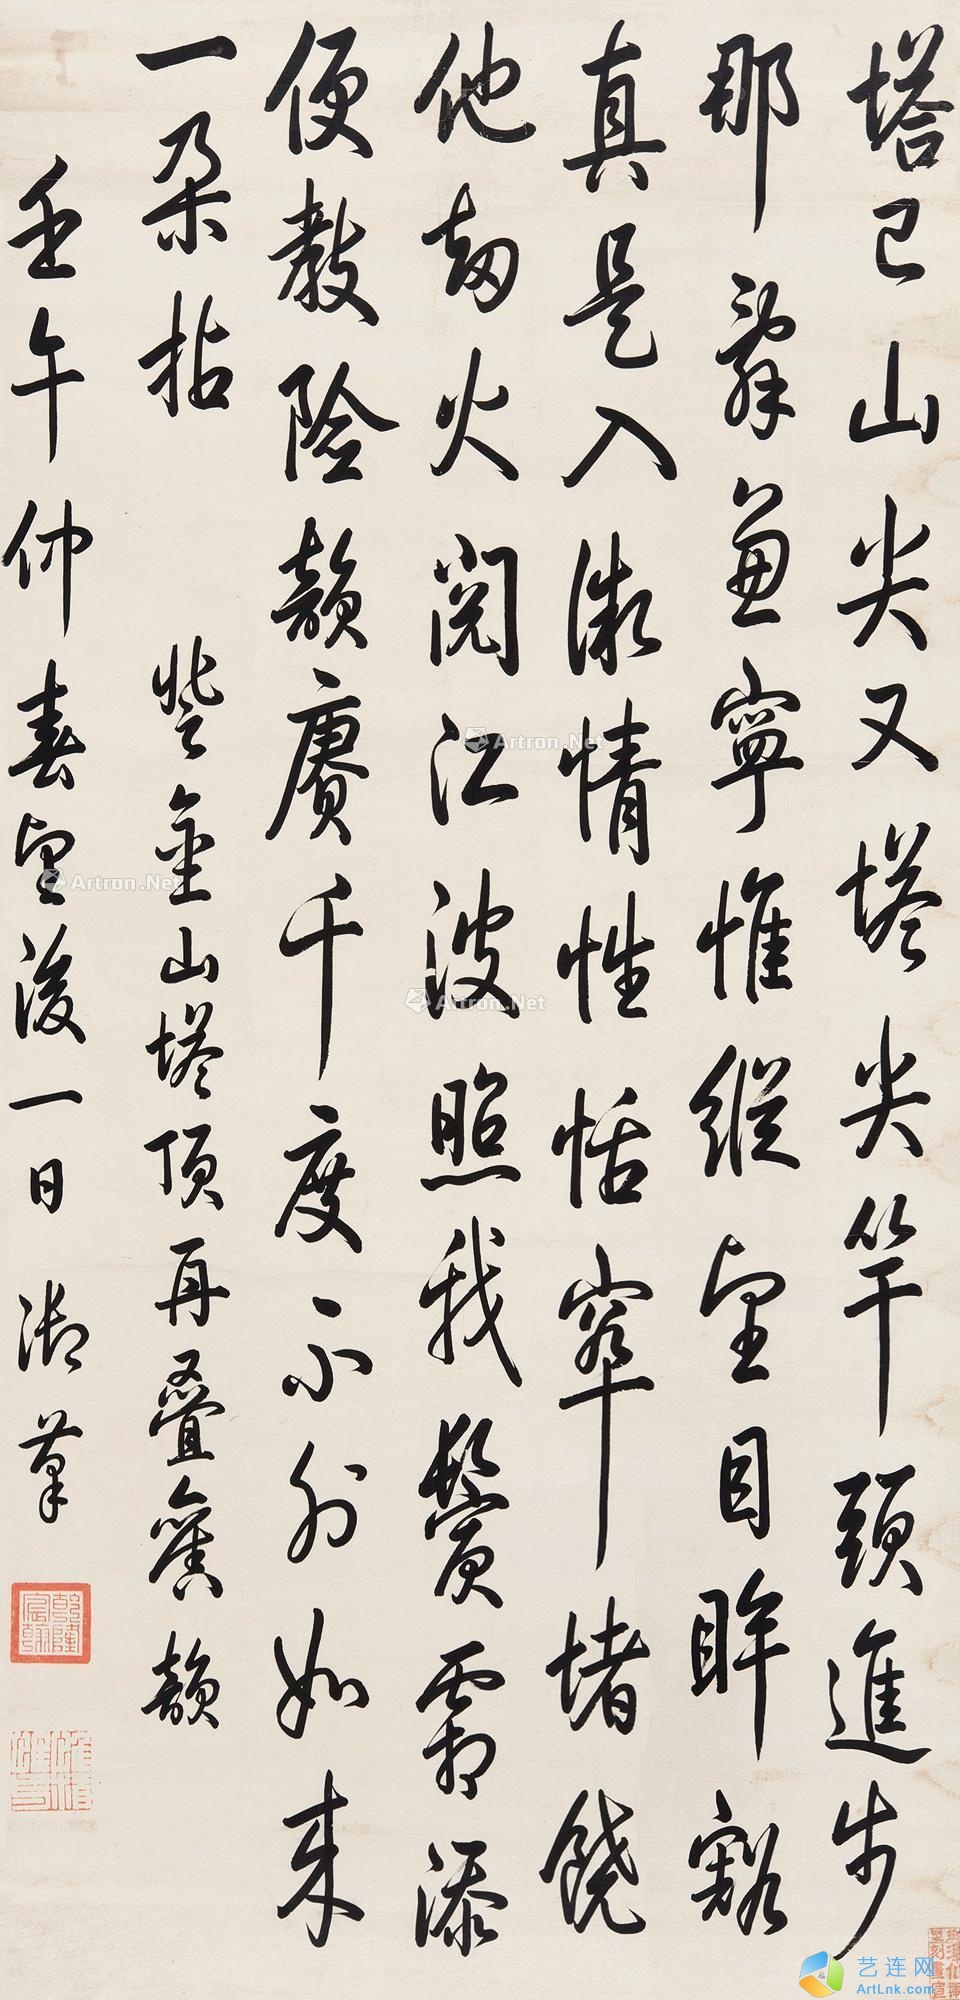 塔已山尖又塔尖竿頭進步
那辭兼寧惟縱望目眸豁
真是入微情性恬窣堵饒
他劫火閱江波照我鬢霜添
便教險韻賡千度不外如来
一朶拈
登金山塔頂再叠舊韻
壬午仲春望後一日御筆
乾隆宸翰
惟精惟一
Artron.Net
Artron.Net
Artron.Net
艺连网
ArtLnk.com